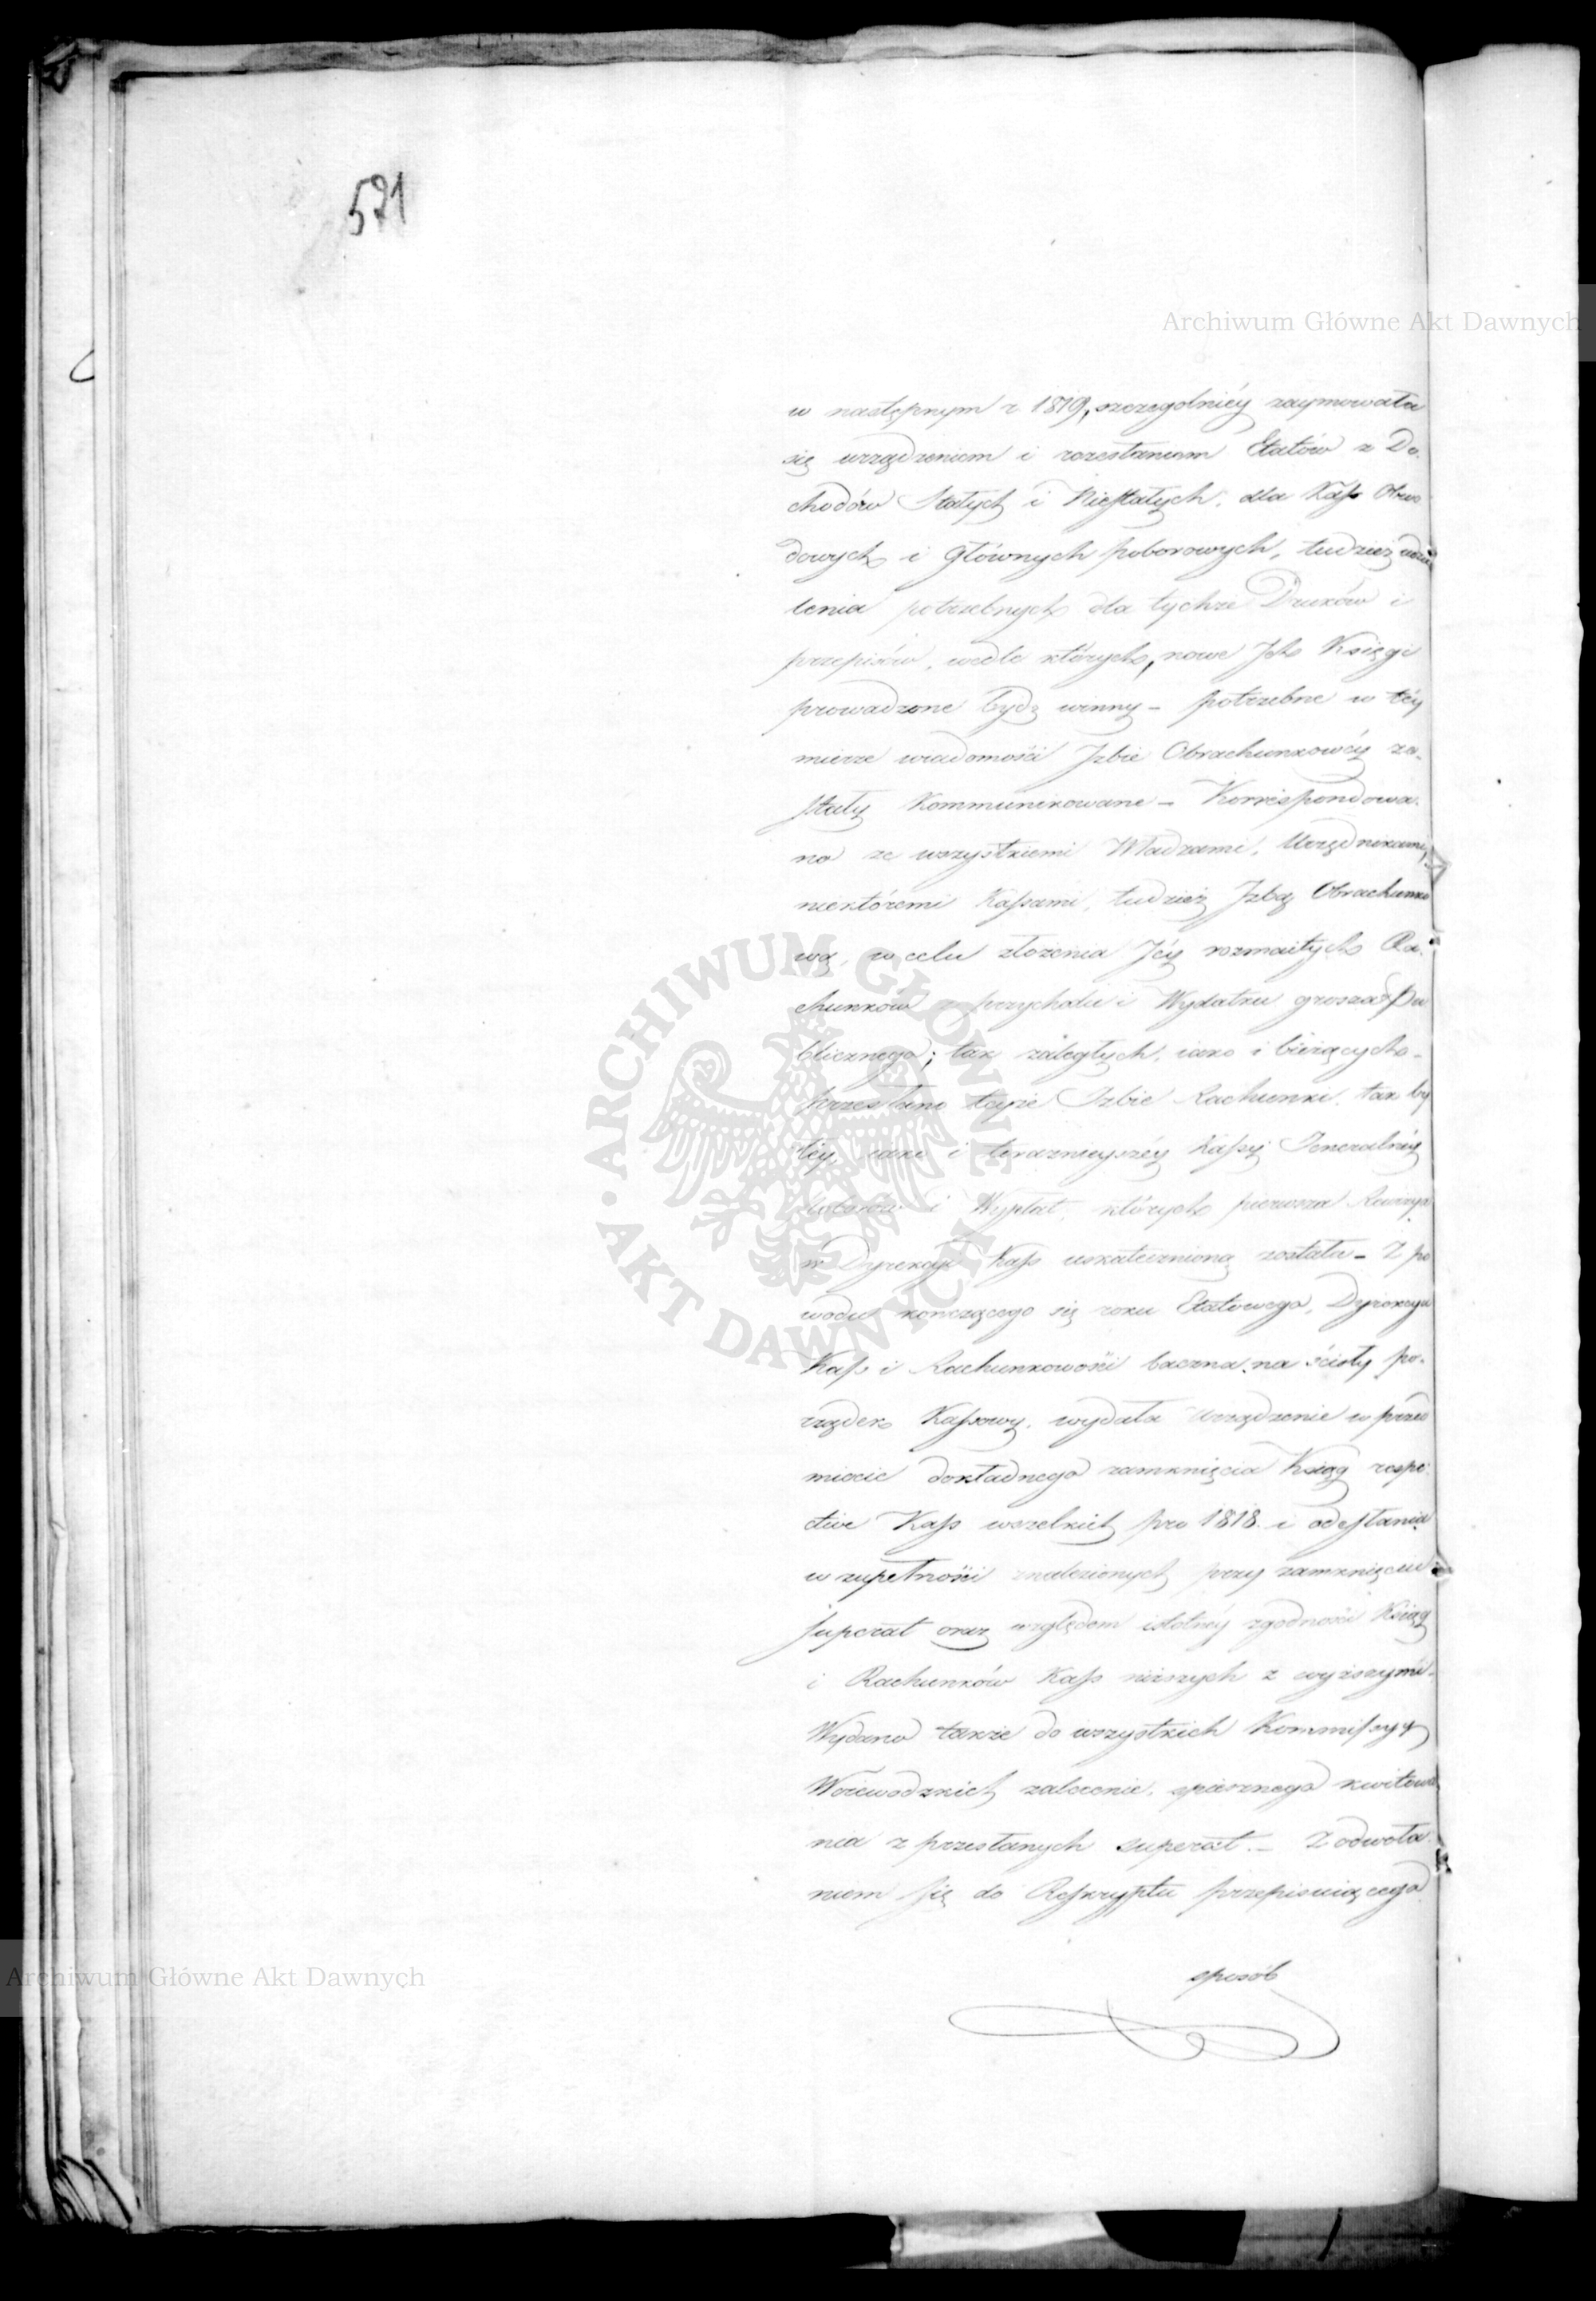 521
Archiwum Główne Akt Dawnych
w następnym r 1819, szczególniéy zaymowała
się urządzeniem i rozesłaniem Etatów z Do,
chodów Stałych i Niestałych, dla Kass Obwo
dowych i Głównych poborowych, tudzież udzie
lenia potrzebnych dla tychże Druków i
przepisów, wedle których, nowe Jch Księgi
prowadzone bydź winny – potrzebne w téy
mierze wiadomości Jzbie Obrachunkowéy zo,
stały Kommunikowane – Korrespondowa,
no ze wszystkiemi Władzami, Urzędnikami,
niektóremi Kassami, tudzież Jzbą Obrachunko
wą, w celu złożenia Jéy rozmaitych Ra,
chunków z przychodu i Wydatku grosza Pu
blicznego; tak zaległych, iako i bieżących –
przesłano teyże Izbie Rachunki, tak by
łéy, iako i teraznieyszéy Kassy Jeneralnéy
Poborów i Wypłat, których pierwsza Rewizya
w Dyrekcyi Kass uskutecznioną została – Z po
wodu kończącego się roku Etatowego, Dyrekcya
Kass i Rachunkowości baczna, na ścisły po,
rządek Kassowy, wydała urządzenie w przed
miocie dokładnego zamknięcia Ksiąg respe,
ctive Kass wszelkich pro 1818. i odesłania
w zupełności znalezionych przy zamknięciu
superat oraz względem istotnéy zgodności Ksiąg
i Rachunków Kass niższych z wyższymi –
Wydano także do wszystkich Kommissyy
Woiewodzkich zalecenie, spiesznego kwitowa
nia z przesłanych superat. – Z odwoła,
niem się do Reskryptu przepisuiącego
sposób
Archiwum Główne Akt Dawnych
ARCHIWUM GŁÓWNE · AKT DAWNYCH ·